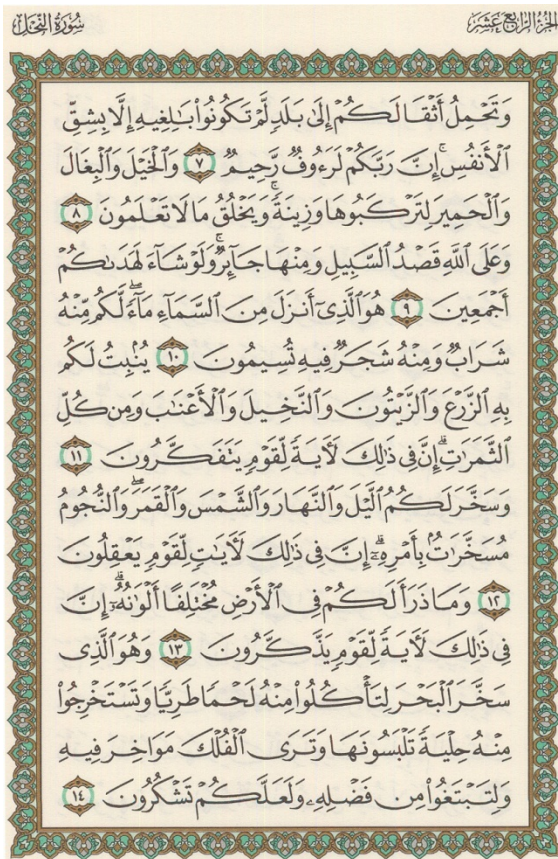 الجزء الرابع عشر
سورة النحل
وَتَحْمِلُ أَثْقَالَكُمْ إِلَىٰ بَلَدٍ لَّمْ تَكُونُوا۟ بَـٰلِغِيهِ إِلَّا بِشِقِّ
ٱلْأَنفُسِ ۚ إِنَّ رَبَّكُمْ لَرَءُوفٌ رَّحِيمٌ ٧ وَٱلْخَيْلَ وَٱلْبِغَالَ
وَٱلْحَمِيرَ لِتَرْكَبُوهَا وَزِينَةً ۚ وَيَخْلُقُ مَا لَا تَعْلَمُونَ ٨
وَعَلَى ٱللَّهِ قَصْدُ ٱلسَّبِيلِ وَمِنْهَا جَآئِرٌ ۚ وَلَوْ شَآءَ لَهَدَىٰكُمْ
أَجْمَعِينَ ٩ هُوَ ٱلَّذِىٓ أَنزَلَ مِنَ ٱلسَّمَآءِ مَآءً ۖ لَّكُم مِّنْهُ
شَرَابٌ وَمِنْهُ شَجَرٌ فِيهِ تُسِيمُونَ ١٠ يُنۢبِتُ لَكُم
بِهِ ٱلزَّرْعَ وَٱلزَّيْتُونَ وَٱلنَّخِيلَ وَٱلْأَعْنَـٰبَ وَمِن كُلِّ
ٱلثَّمَرَٰتِ ۗ إِنَّ فِى ذَٰلِكَ لَـَٔايَةً لِّقَوْمٍ يَتَفَكَّرُونَ ١١
وَسَخَّرَ لَكُمُ ٱلَّيْلَ وَٱلنَّهَارَ وَٱلشَّمْسَ وَٱلْقَمَرَ ۖ وَٱلنُّجُومُ
مُسَخَّرَٰتٌۢ بِأَمْرِهِۦٓ ۗ إِنَّ فِى ذَٰلِكَ لَـَٔايَـٰتٍ لِّقَوْمٍ يَعْقِلُونَ
١٢ وَمَا ذَرَأَ لَكُمْ فِى ٱلْأَرْضِ مُخْتَلِفًا أَلْوَٰنُهُۥٓ ۗ إِنَّ
فِى ذَٰلِكَ لَـَٔايَةً لِّقَوْمٍ يَذَّكَّرُونَ ١٣ وَهُوَ ٱلَّذِى
سَخَّرَ ٱلْبَحْرَ لِتَأْكُلُوا۟ مِنْهُ لَحْمًا طَرِيًّا وَتَسْتَخْرِجُوا۟
مِنْهُ حِلْيَةً تَلْبَسُونَهَا وَتَرَى ٱلْفُلْكَ مَوَاخِرَ فِيهِ
وَلِتَبْتَغُوا۟ مِن فَضْلِهِۦ وَلَعَلَّكُمْ تَشْكُرُونَ ١٤